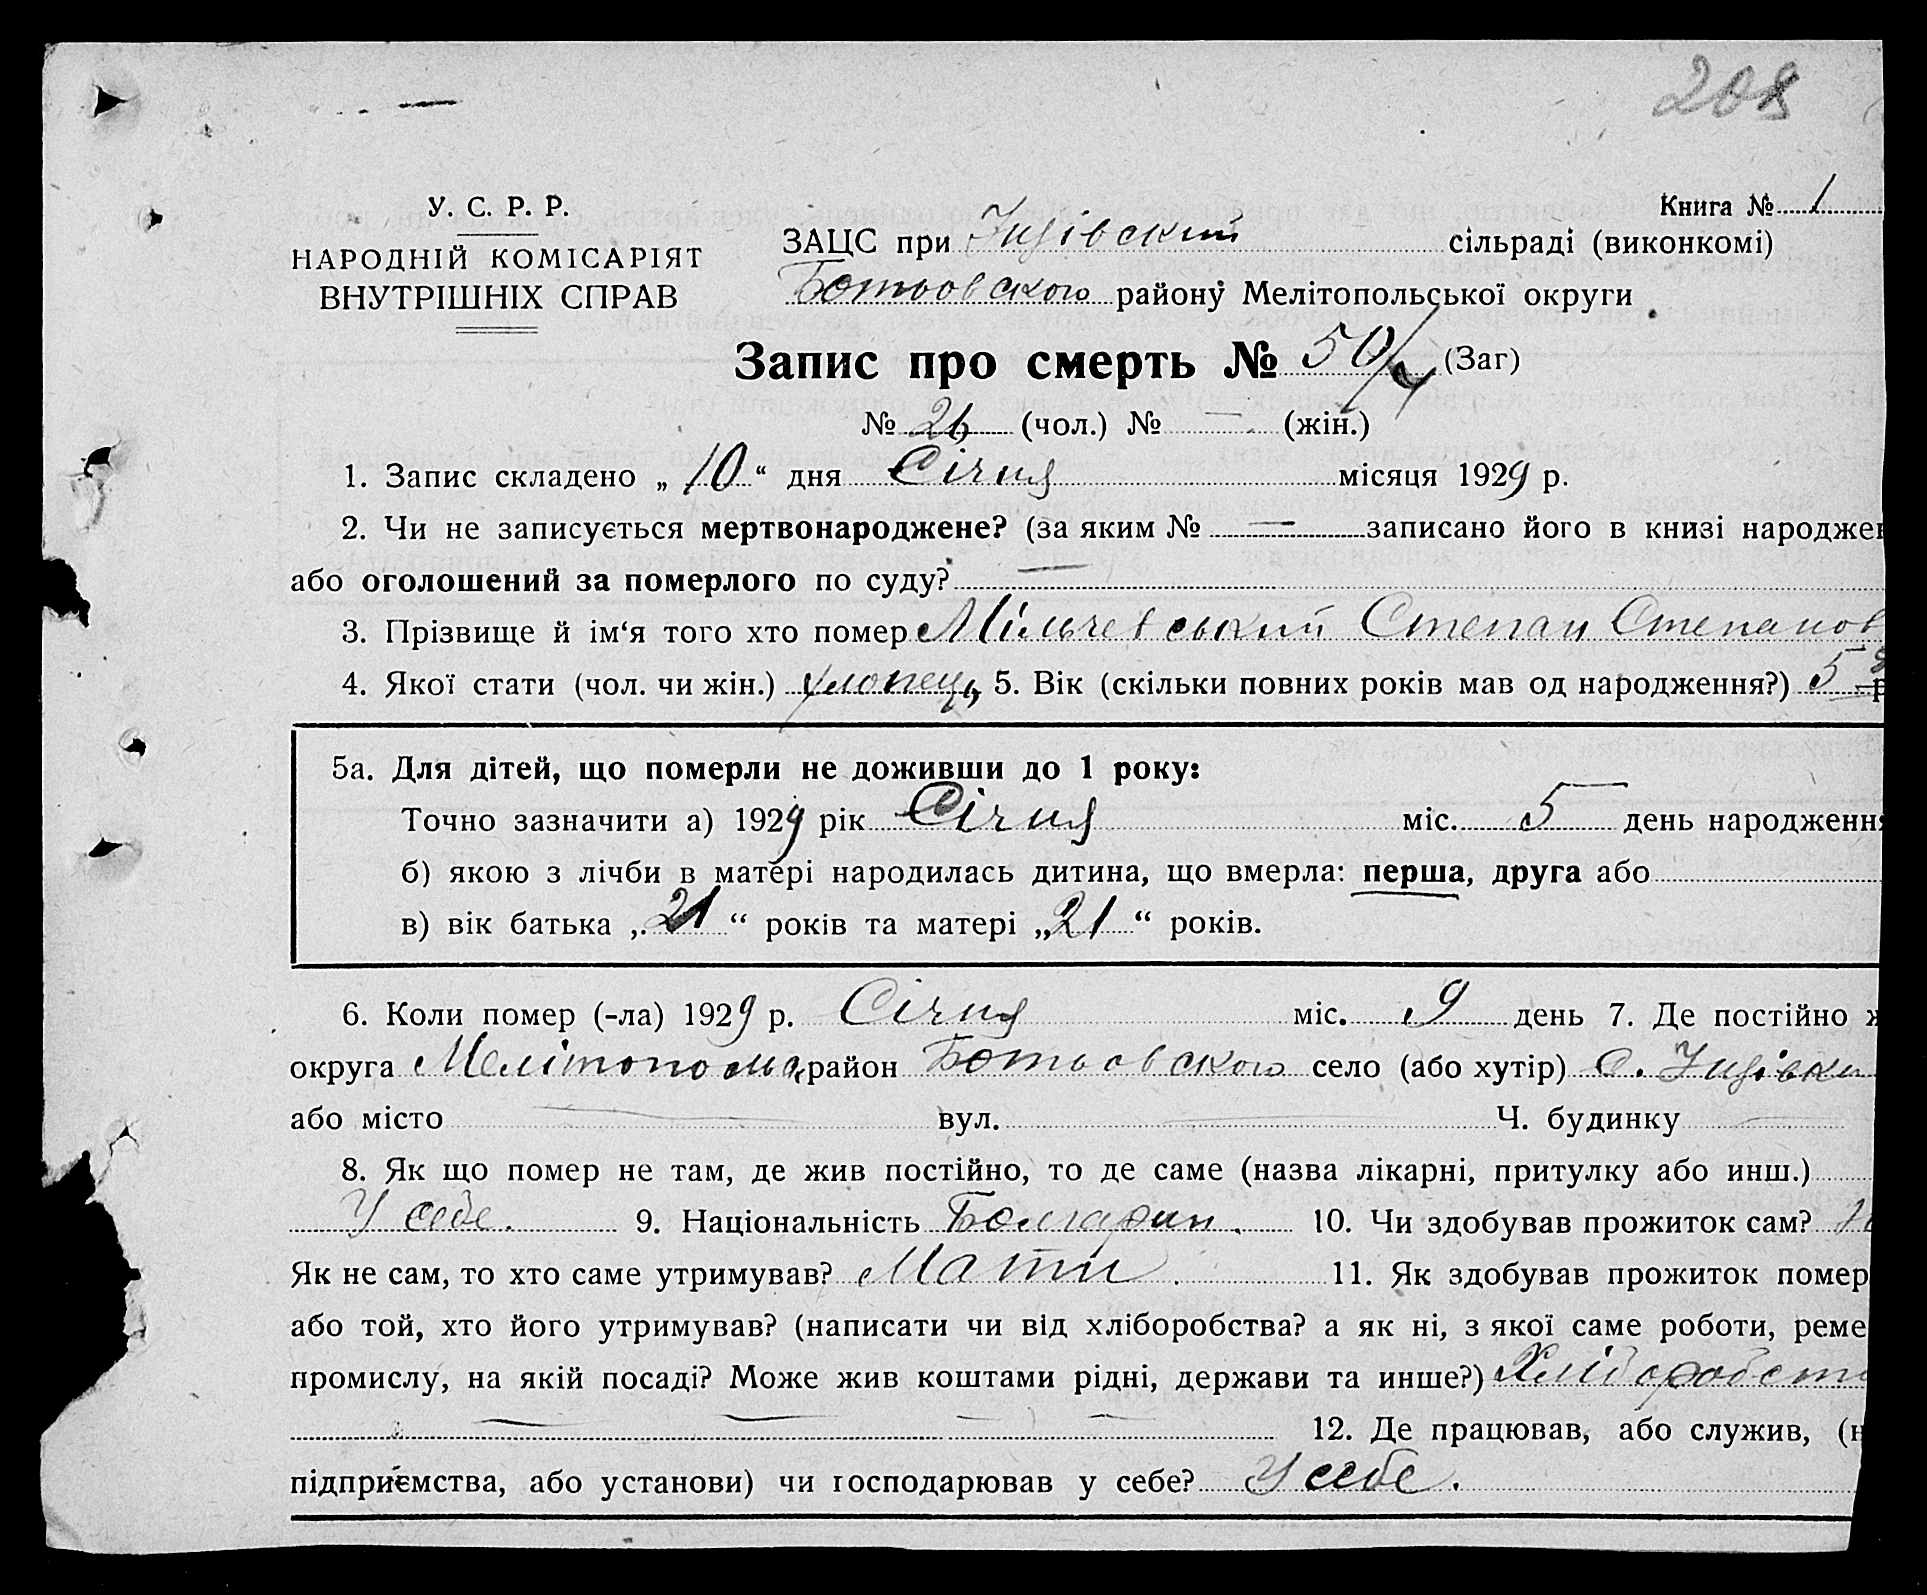 208
У. С. Р. Р.
НАРОДНІЙ КОМІСАРІЯТ
ВНУТРІШНІХ СПРАВ
Книга № 1
ЗАЦС при сільраді (виконкомі)
Ботьовского району Мелітопольської округи
Запис про смерть № 50/ (Заг)
№ 26 (чол.) № — (жін.)
1. Запис складено „ 10 “ дня Січня місяця 1929 р.
2. Чи не записується мертвонароджене? (за яким № — записано його в книзі народжен
або оголошений за померлого по суду? —
3. Прізвище й ім‘я того хто помер Мільчевський Степан Степанов
4. Якої стати (чол. чи жін.) хлопець 5. Вік (скільки повних років мав од народження?) 5
5а. Для дітей, що померли не доживши до 1 року:
Точно зазначити а) 1929 рік Січня міс. 5 день народження
б) якою з лічби в матері народилась дитина, що вмерла: перша, друга або
в) вік батька „ 21 “ років та матері „ 21 “ років.
6. Коли помер (-ла) 1929 р. Січня міс. 9 день 7. Де постійно ж
округа Мелітопольс район Ботьовского село (або хутір) с.
або місто — вул. — Ч. будинку —
8. Як що помер не там, де жив постійно, то де саме (назва лікарні, притулку або инш.)
У себе. 9. Національність Болгарин. 10. Чи здобував прожиток сам?
Як не сам, то хто саме утримував? Мати. 11. Як здобував прожиток помер
або той, хто його утримував? (написати чи від хліборобства? а як ні, з якої саме роботи, реме
промислу, на якій посаді? Може жив коштами рідні, держави та инше?) Хліборобств
— — — — 12. Де працював, або служив, (н
підприємства, або установи) чи господарював у себе? У себе.